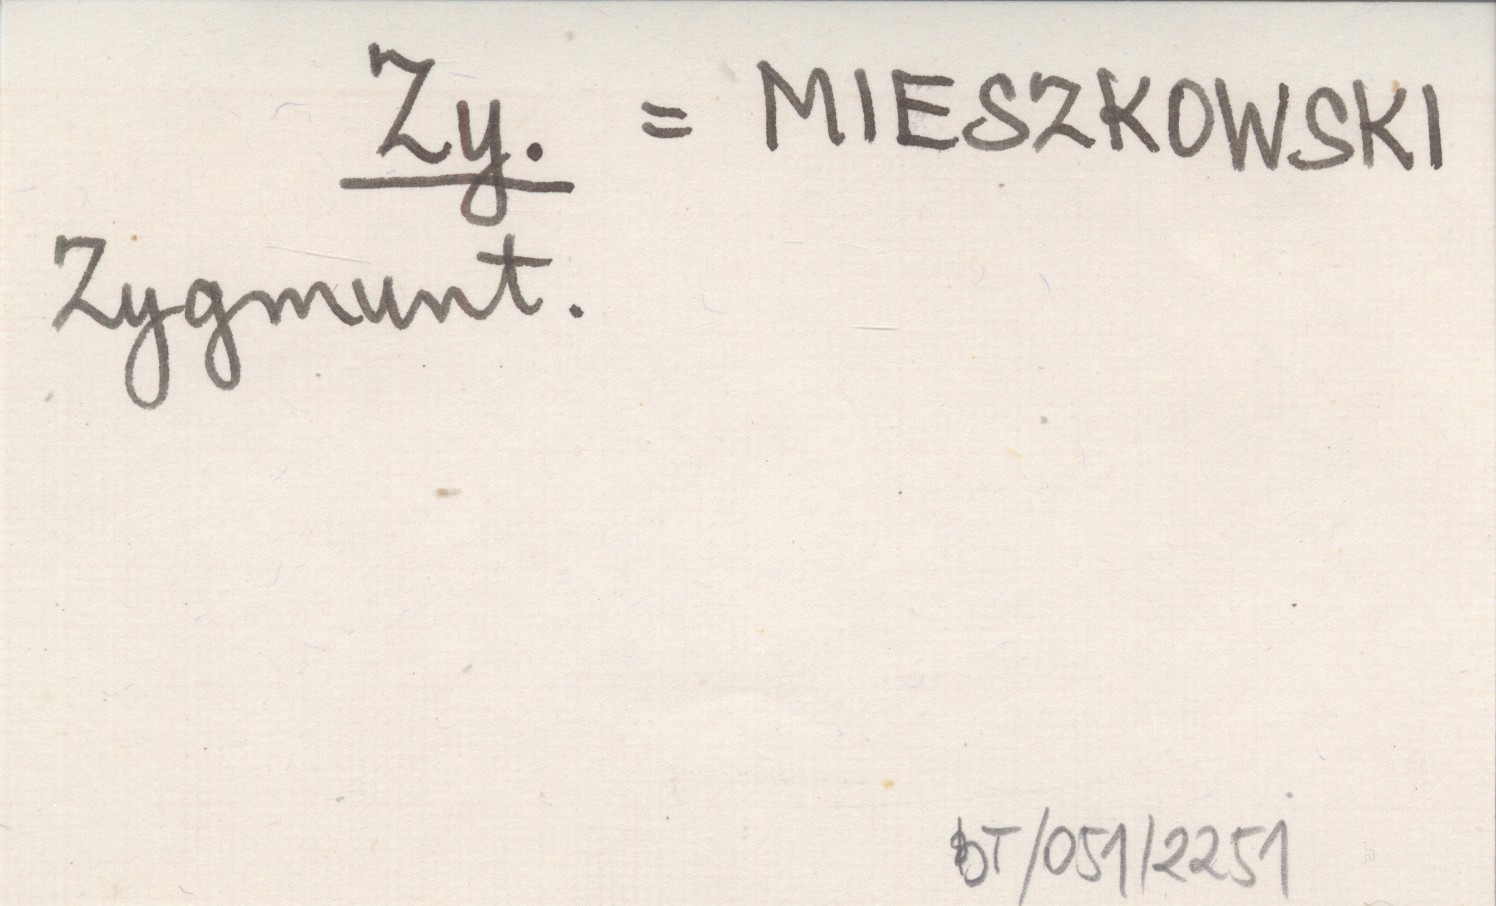 Zy. = MIESZKOWSKI
Zygmunt.
DT/051/2251